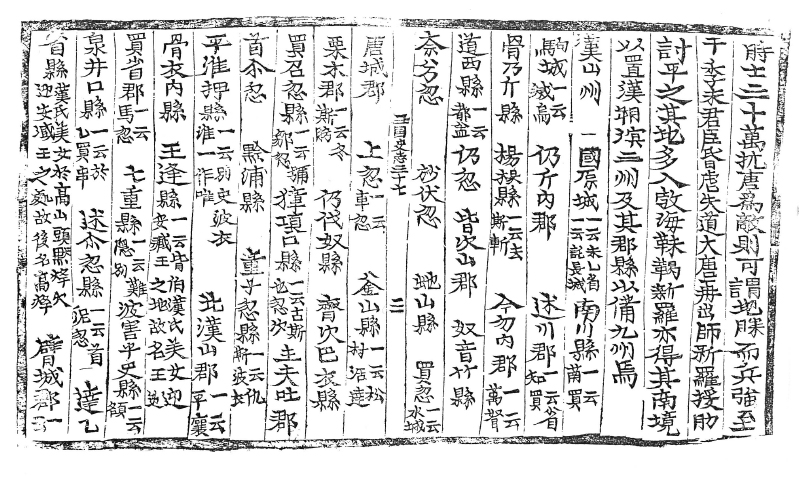 勝士三十萬抗唐爲敵則可謂地勝而兵強至
于季末君臣昏虐失道大唐再出師新羅援助
討平之其地多入敦海靺鞨新羅亦得其南境
以置漢朔溟三州及其郡縣以備九州焉
漢山州 一國原城一云未乙省一云託長城 南川縣一云南買
駒城一云滅烏 仍斤內郡 述川郡一云省知買
骨乃斤縣 楊根縣一云去斯斬 今勿內郡一云萬弩
道西縣一云都盆 仍忽 皆次山郡 奴音竹縣
奈兮忽 沙伏忽 虵山縣 買忽一云水城
三國史志三十七 二
唐城郡 上忽一云車忽 釜山縣一云松村活達
栗木郡一云冬斯肹 仍伐奴縣 齊次巴衣縣
買召忽縣一云彌鄒忽 獐項口縣一云古斯也忽次 主夫吐郡
首尒忽 黔浦縣 童子忽縣一云仇斯波衣
平淮押縣一云別史波衣淮一作唯 北漢山郡一云平壤
骨衣內縣 王逢縣一云皆伯漢氏美女迎安臧王之地故名王逢
買省郡一云馬忽 七重縣一云難隱別 波害平史縣一云額
泉井口縣一云於乙買串 述尒忽縣一云首泥忽 達乙
省縣漢氏美女於高山頭點烽火迎安臧王之處故後名高烽 臂城郡一云